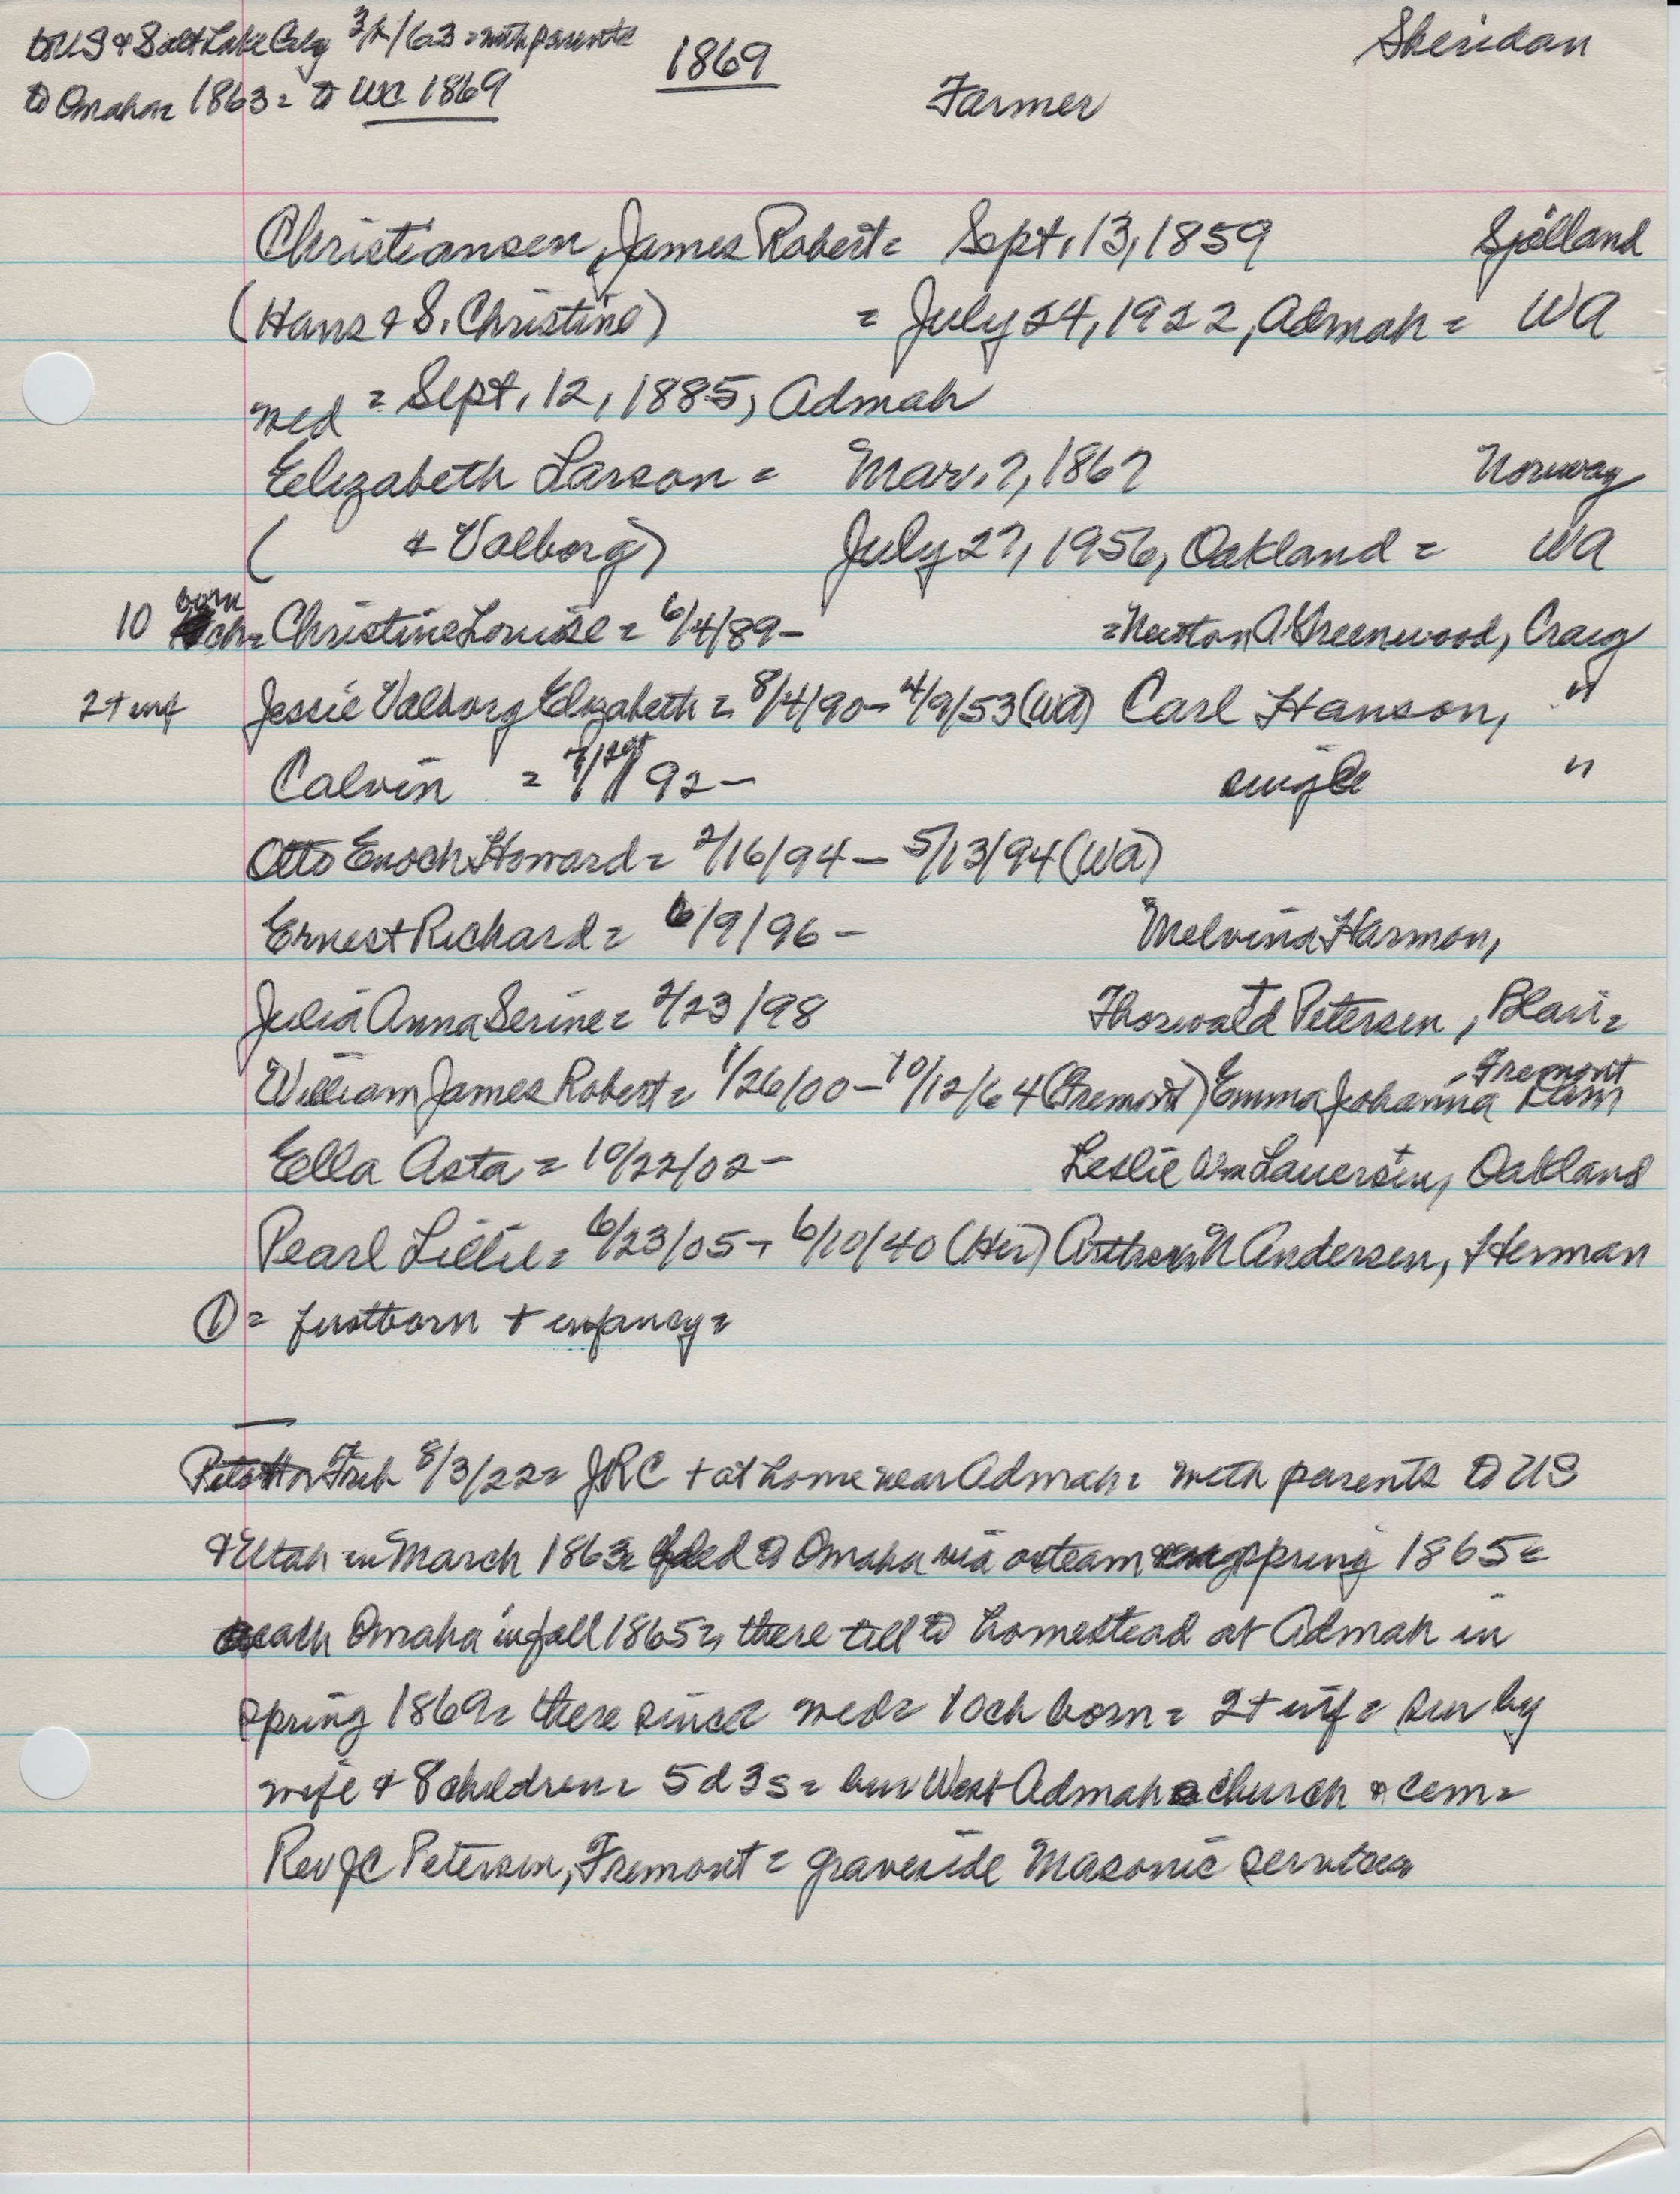 to US & Salt Lake City 3/ /63 = with parents
to Omaha = 1863 = to WC 1869
1869
Sheridan
Farmer
Christiansen, James Robert = Sept. 13, 1859 Sjölland
(Hans & S. Christine) = July 24, 1922, Admah = WA
med = Sept. 12, 1885, Admah
Elizabeth Larson = Mar. 7, 1867 Norway
( & Valborg) July 27, 1956, Oakland = WA
10 born ch = Christine Louise = 6/4/89 - = Newton A Greenwood, Craig
2 + inf Jessie Valborg Elizabeth = 8/4/90 - 4/9/53 (WA) Carl Hanson, "
Calvin = 92 - single "
Otto Enoch Howard = 2/16/94 - 5/13/94 (WA)
Ernest Richard = 6/9/96 - Melvina Harmon,
Julia Anna Serine = 2/23/98 Thorwald Petersen, Blair =
William James Robert = 1/26/00 - 10/12/64 (Fremont) Emma Johanna - Fremont
Ella Asta = 10/22/02 - Leslie Wm Lauersen, Oakland
Pearl Lillie = 6/23/05 - 6/10/40 (Her) Arthur N Andersen, Herman
① = firstborn + infancy =
Trib 8/3/22 = JRC + at home near Admah = with parents to US
& Utah in March 1863 = to Omaha via oxteam spring 1865 =
reach Omaha in fall 1865 =, there till to homestead at Admah in
spring 1869 = there since med = 10 ch born = 2 + inf = sur by
wife & 8 children = 5 d 3 s = bur West Admah church & cem =
Rev JC Petersen, Fremont = graveside Masonic services